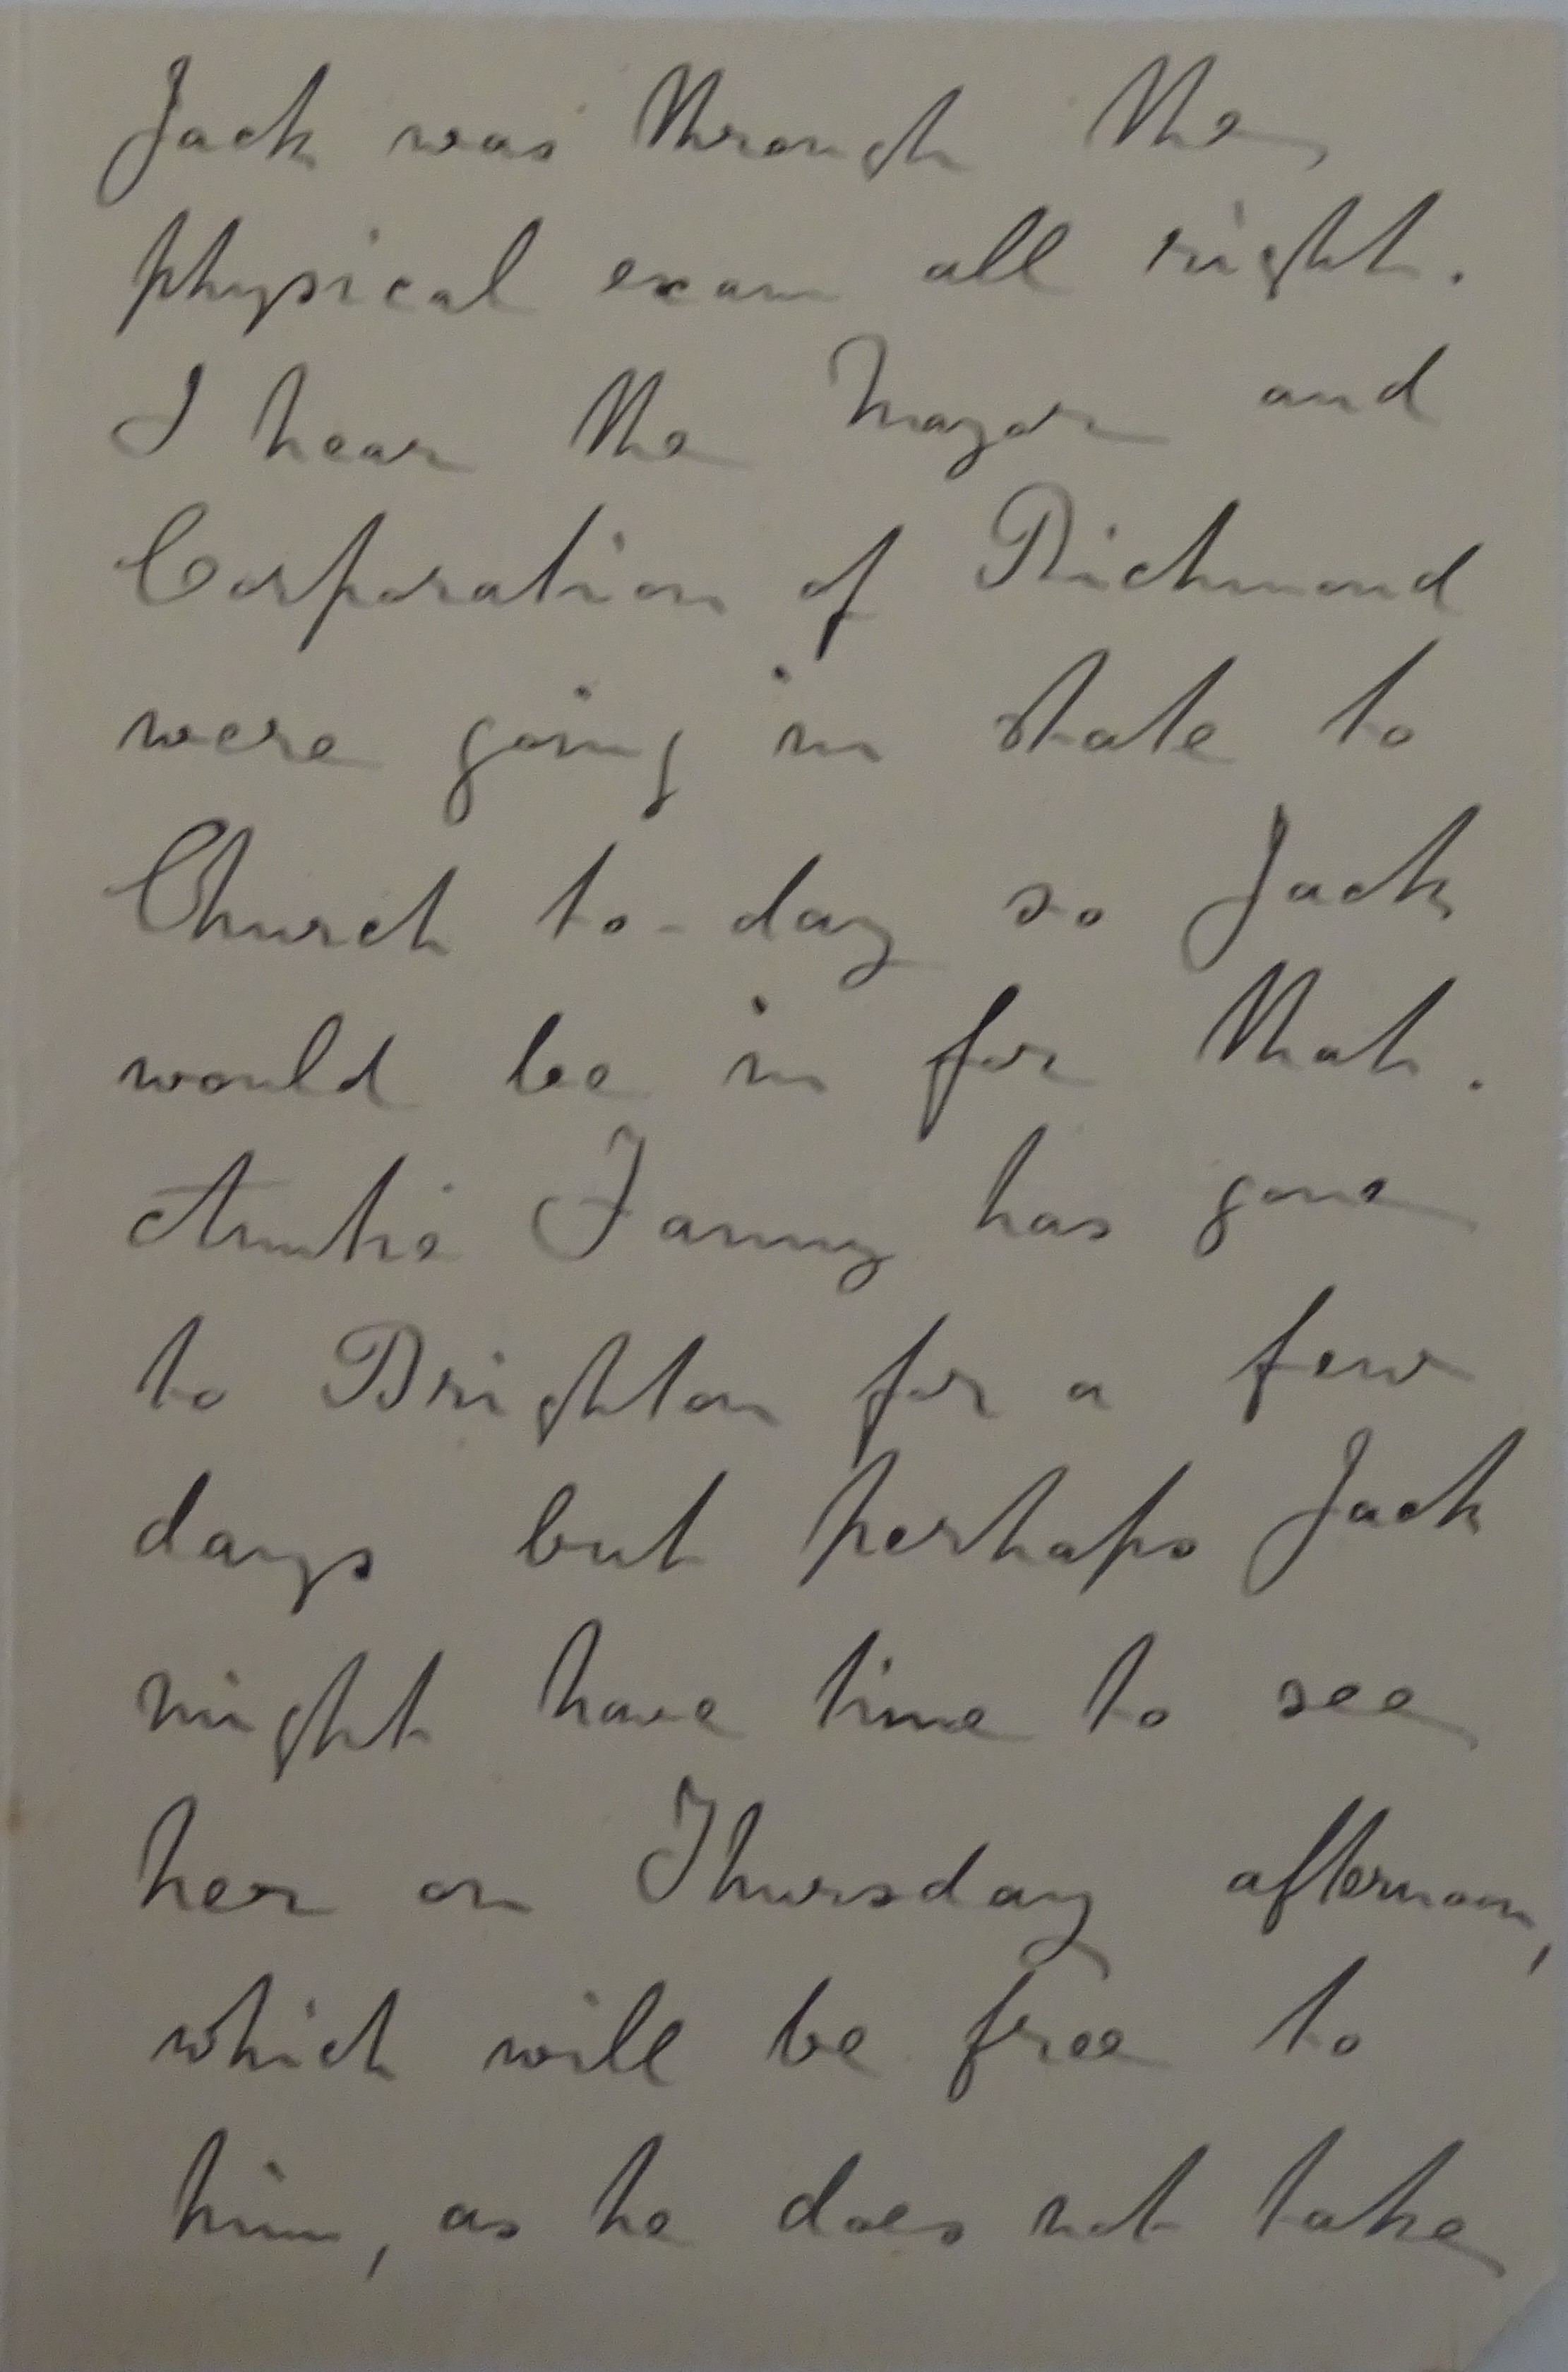 Jack was through the
physical exam all right.
I hear the Mayor and
Corporation of Richmond
were going in state to
Church to-day so Jack
would be in for that.
Auntie Fanny has gone
to Brighton for a few
days but perhaps Jack
might have time to see
her on Thursday afternoon,
which will be free to
him, as he does not take